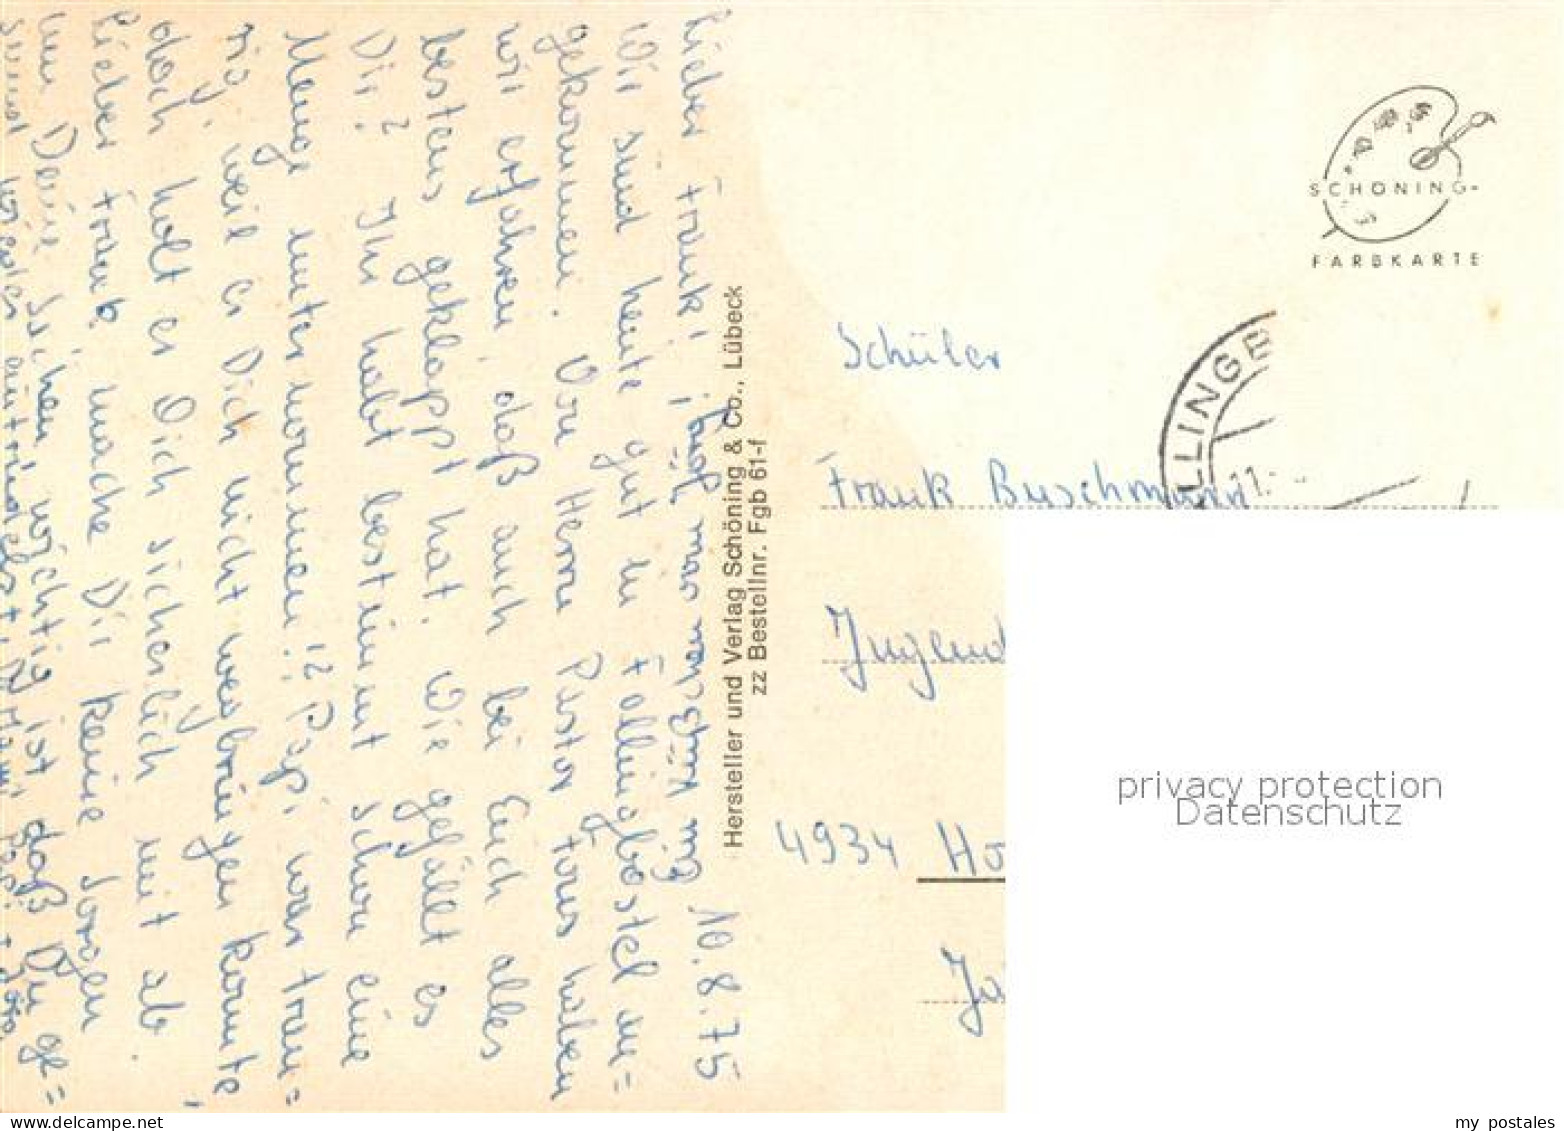 10.8.75
Lieber Frank!
Wir sind heute gut in Fallingbostel an=
gekommen. Von Herrn Pastor Fous haben
wir erfahren, daß auch bei Euch alles
bestens geklappt hat. Wie gefällt es
Dir? Ihr habt bestimmt schon eine
Menge unternommen!? Papi war trau=
rig, weil er Dich nicht wegbringen konnte,
doch holt er Dich sicherlich mit ab.
Lieber Frank, mache Dir keine Sorgen
um Deine Sachen, wichtig ist daß Du ge=
sund wieder eintrudelst.
Hersteller und Verlag Schöning & Co., Lübeck
zz Bestellnr. Fgb 61-f
SCHÖNING-
FARBKARTE
LLINGB
11.
Schüler
Frank Buschmann
Jugend
4934 Ho
privacy protection
Datenschutz
delcampe.net
my_postales